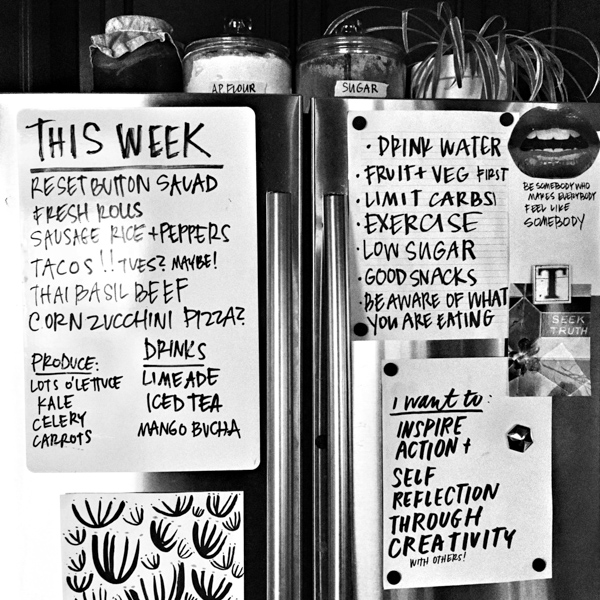 AP FLOUR
SUGAR
THIS WEEK
RESET BUTTON SALAD
FRESH ROLLS
SAUSAGE RICE + PEPPERS
TACOS!! TUES? MAYBE!
THAI BASIL BEEF
CORN ZUCCHINI PIZZA?
PRODUCE:
LOTS O'LETTUCE
KALE
CELERY
CARROTS
DRINKS
LIMEADE
ICED TEA
MANGO BUCHA
· DRINK WATER
· FRUIT + VEG FIRST
· LIMIT CARBS
· EXERCISE
· LOW SUGAR
· GOOD SNACKS
· BE AWARE OF WHAT
YOU ARE EATING
BE SOMEBODY WHO
MAKES EVERYBODY
FEEL LIKE
SOMEBODY
T
SEEK
TRUTH
I want to:
INSPIRE
ACTION +
SELF
REFLECTION
THROUGH
CREATIVITY
WITH OTHERS!